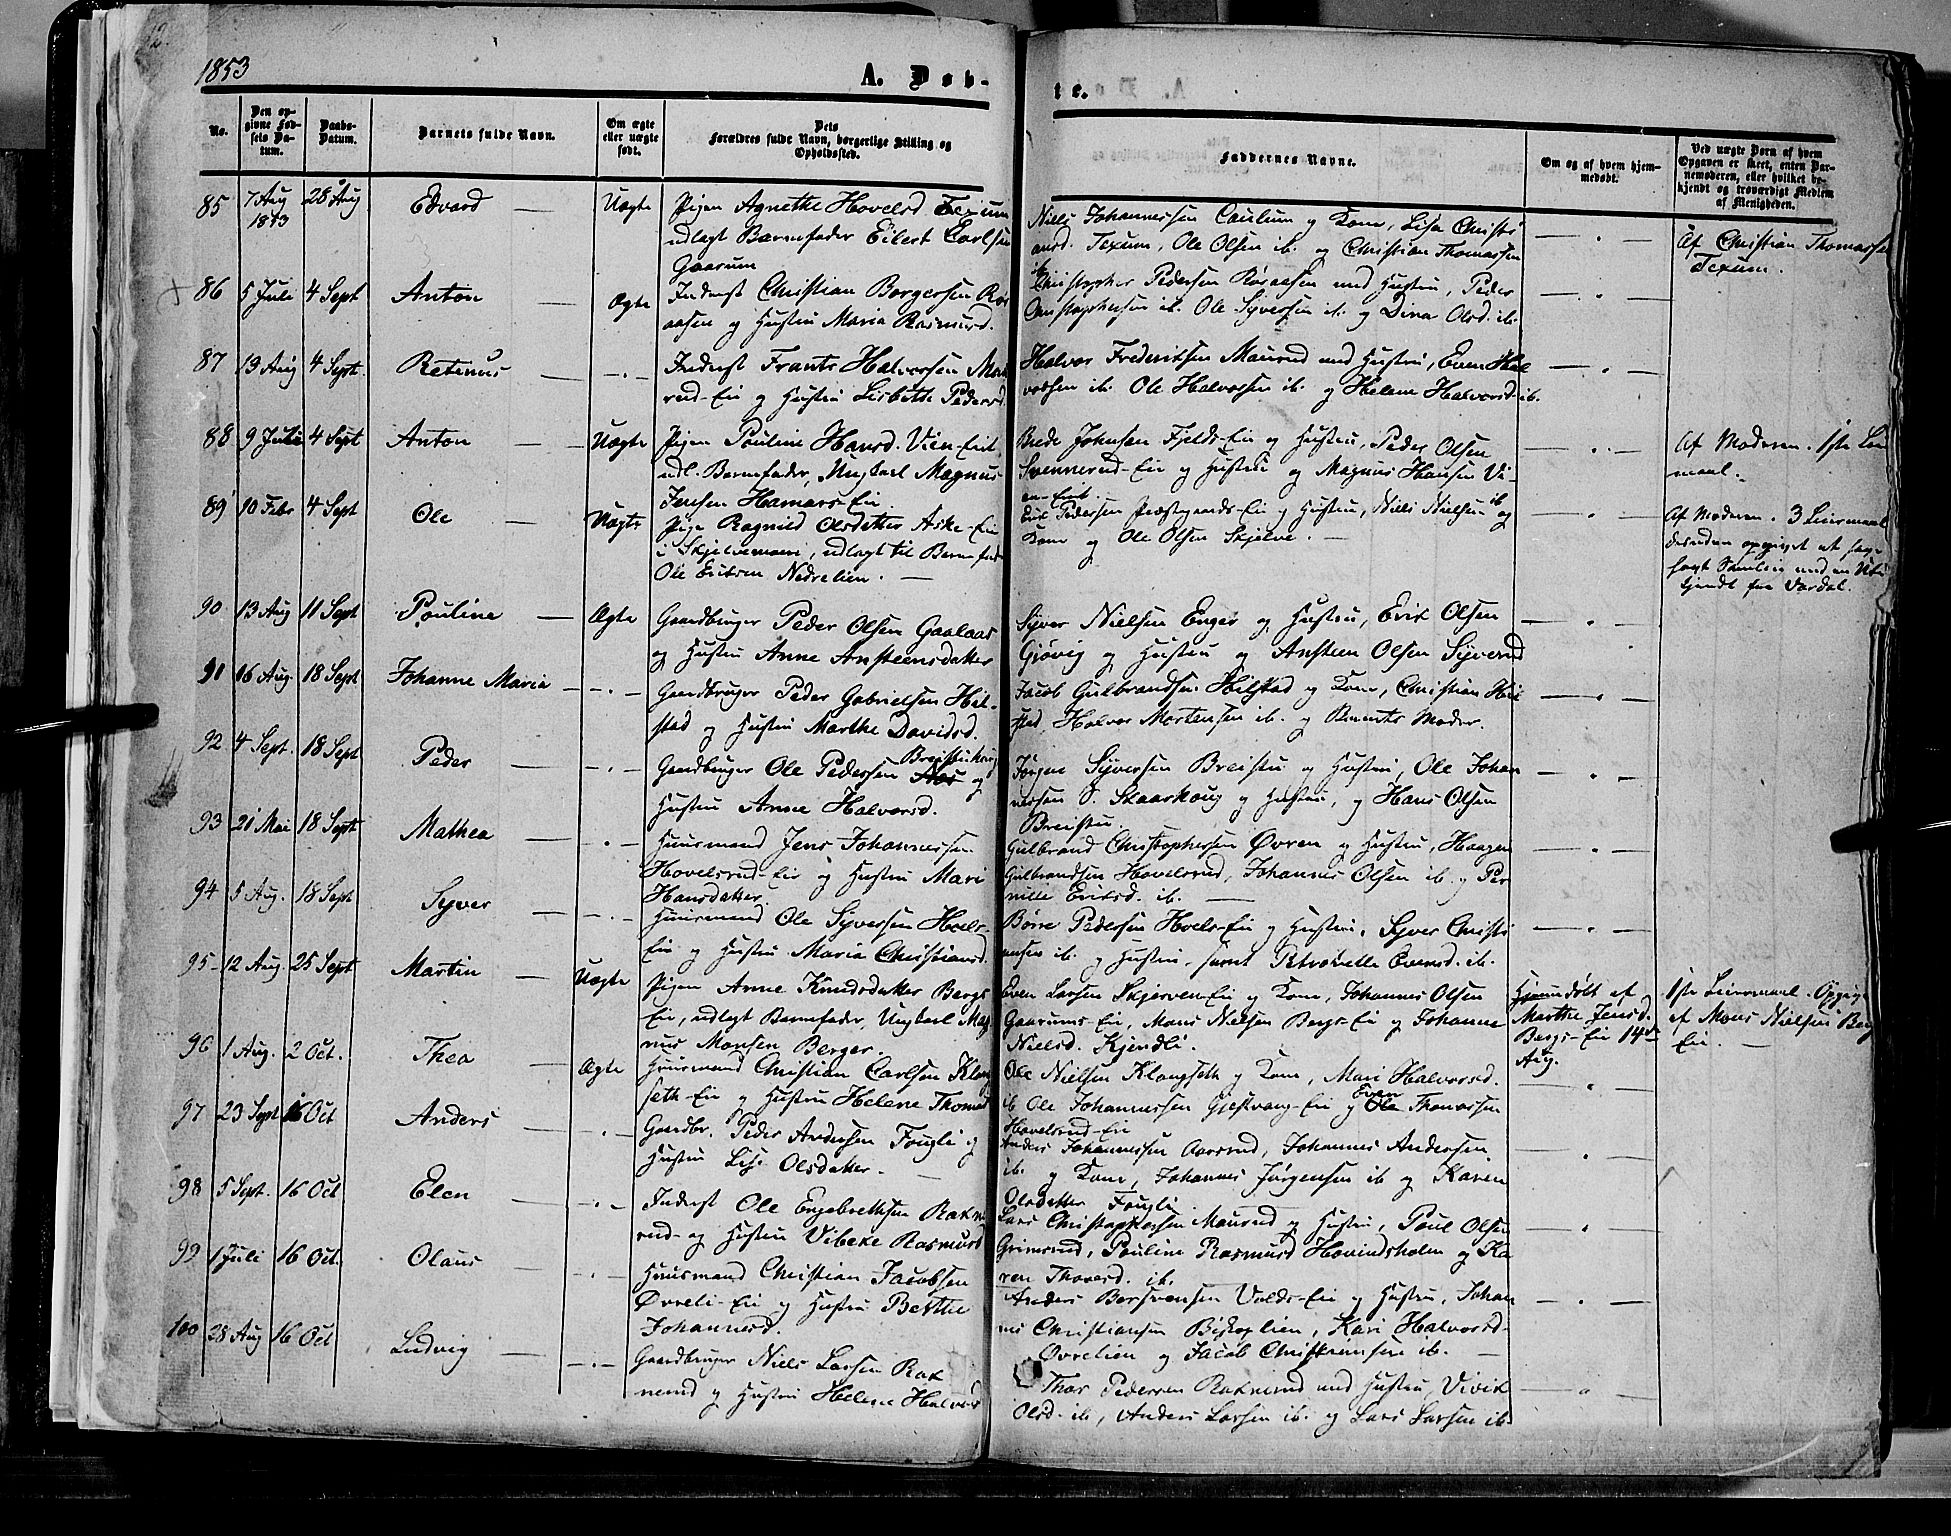 12.
1853
A. Døb-
te.
No.
Den op-
givne Fød-
sels Da-
tum.
Daabs-
Datum.
Barnets fulde Navn.
Om ægte
eller uægte
født.
Dets
Forældres fulde Navn, borgerlige Stilling og
Opholdssted.
Faddernes Navne.
Om og af hvem hjem-
medøbt.
Ved uægte Børn af hvem
Opgaven er skeet, enten Bar-
nemoderen, eller hvilket be-
kjendt og troværdigt Medlem
af Menigheden.
85 7 Aug 28 Aug Edvard — Uægte Pigen Agnethe Hovelsd Texum
1843 udlagt Barnefader Eilert Carlsen
Gaarum
Niels Johannessen Caulum og Kone, Lisa Christi
ansd. Texum, Ole Olsen ib. og Christian Thomassen
ib.
Af Christian Thomassen
Texum.
86 5 Juli 4 Sept Anton — Ægte Inderst Christian Borgersen Røs
aasen og Hustru Maria Rasmusd.
Christopher Pedersen Røsaasen med Hustru, Peder
Christophersen ib. Ole Syversen ib. og Dina Olsd. ib.
87 13 Aug 4 Sept. Retinus — Inderst Frants Halvorsen Mau
rud-Eie og Hustru Lisbeth Pedersd.
Halvor Frederiksen Maurud med Hustru, Even Hal
vorsen ib. Ole Halvorsen ib. og Helene Halvorsd. ib.
88 9 Juli 4 Sept Anton — Uægte Pigen Pauline Hansd. Vien-Eie
udl. Barnefader, Ungkarl Magnus
Jensen Hamars-Eie
Brede Johnsen Fjelds-Eie og Hustru, Peder Olsen
Svennerud-Eie og Hustru og Magnus Hansen Vi-
en-Eie.
Af Moderen. 1ste Lei
maal.
89 10 Febr 4 Sept Ole — Uægte Pige Ragnild Olsdatter Aske-Eie
i Skjelvemoen, udlagt til Barnefader
Ole Eriksen Nedrelien. —
Erik Pedersen Præstegaards-Eie og Hustru, Niels Nielsen ib. og
Kone og Ole Olsen Skjelve. —
Af Moderen. 3 Leiermaal
desuden opgivet at have
havt Samleie med en Ube
kjendt fra Vardal.
90 13 Aug 11 Sept Pauline — Ægte Gaardbruger Peder Olsen Gaalaas
og Hustru Anne Ansteensdatter
Syver Nielsen Enger og Hustru, Erik Olsen
Gjøvig og Hustru og Ansteen Olsen Syverud
91 16 Aug. 18 Sept Johanne Maria — Gaardbruger Peder Gabrielsen Hil-
stad og Hustru Marthe Davidsd.
Jacob Gulbrandsen Hilstad og Kone, Christian Hil
stad, Halvor Mortensen ib. og Barnets Moder.
92 4 Sept. 18 Sept Peder — Gaardbruger Ole Pedersen Breistuhaug og
Hustru Anne Halvorsd.
Jørgen Syversen Breistu og Hustru, Ole Johan
nessen S. Skaarhoug og Hustru, og Hans Olsen
Breistu.
93 21 Mai 18 Sept Mathea — Huusmand Jens Johannessen
Hovelsrud-Eie og Hustru Mari
Hansdatter.
Gulbrand Christophersen Øvren og Hustru, Haagen
Gulbrandsen Hovelsrud, Johannes Olsen ib. og Per
nille Eriksd. ib. —
94 5 Aug. 18 Sept Syver — Huusmand Ole Syversen Hoels-
Eie og Hustru Maria Christiansd.
Børre Pedersen Hoels-Eie og Hustru, Syver Christi
ansen ib. og Hustru, samt Petronelle Evensd. ib.
95 12 Aug. 25 Sept Martin — Uægte Pigen Anne Knudsdatter Bergs
Eie, udlagt Barnefader, Ungkarl Mag
nus Monsen Berger.
Even Larsen Skjerven-Eie og Kone, Johannes Olsen
Gaarums-Eie, Mons Nielsen Bergs-Eie og Johanne
Nielsd. Kjendli.
Hjemmedøbt af
Marthe Jensd.
Bergs-Eie 14de
Aug.
1ste Leiermaal. Opgiv.
af Mons Nielsen Berg
Eie. —
96 1 Aug. 2 Oct. Thea — Ægte Huusmand Christian Carlsen Klang
seth-Eie og Hustru Helene Thomasd
Ole Nielsen Klangseth og Kone, Mari Halvorsd.
ib. Ole Johannessen Gjestvang-Eie og Even Thomassen
Hovelsrud-Eie
97 23 Sept 16 Oct Anders — Gaardbr. Peder Andersen Fougli og
Hustru Lise Olsdatter —
Anders Johannessen Aarsrud, Johannes Andersen
ib. og Kone, Johannes Jørgensen ib og Karen
Olsdatter Fougli.
98 5 Sept. 16 Oct Elen — Inderst Ole Engebretsen Rakne
rud- og Hustru Vibeke Rasmusd
Lars Christophersen Maurud og Hustru, Poul Olsen
Grimsrud, Pauline Rasmusd Hovindsholm og Ka
ren Thorsd. ib.
99 1 Juli 16 Oct. Olaus — Huusmand Christian Jacobsen
Øvreli-Eie og Hustru Berthe
Johannesd.
Anders Borsvensen Volds-Eie og Hustru, Johan
nes Christiansen Biskoplien, Kari Halvorsd-
Øvrelien og Jacob Christiansen ib. —
100 28 Aug 16 Oct Ludvig — Gaardbruger Niels Larsen Rak
nerud og Hustru Helene Halvors
Thor Pedersen Raknerud med Hustru, Vivik
Olsd. ib., Anders Larsen ib. og Lars Larsen ib.